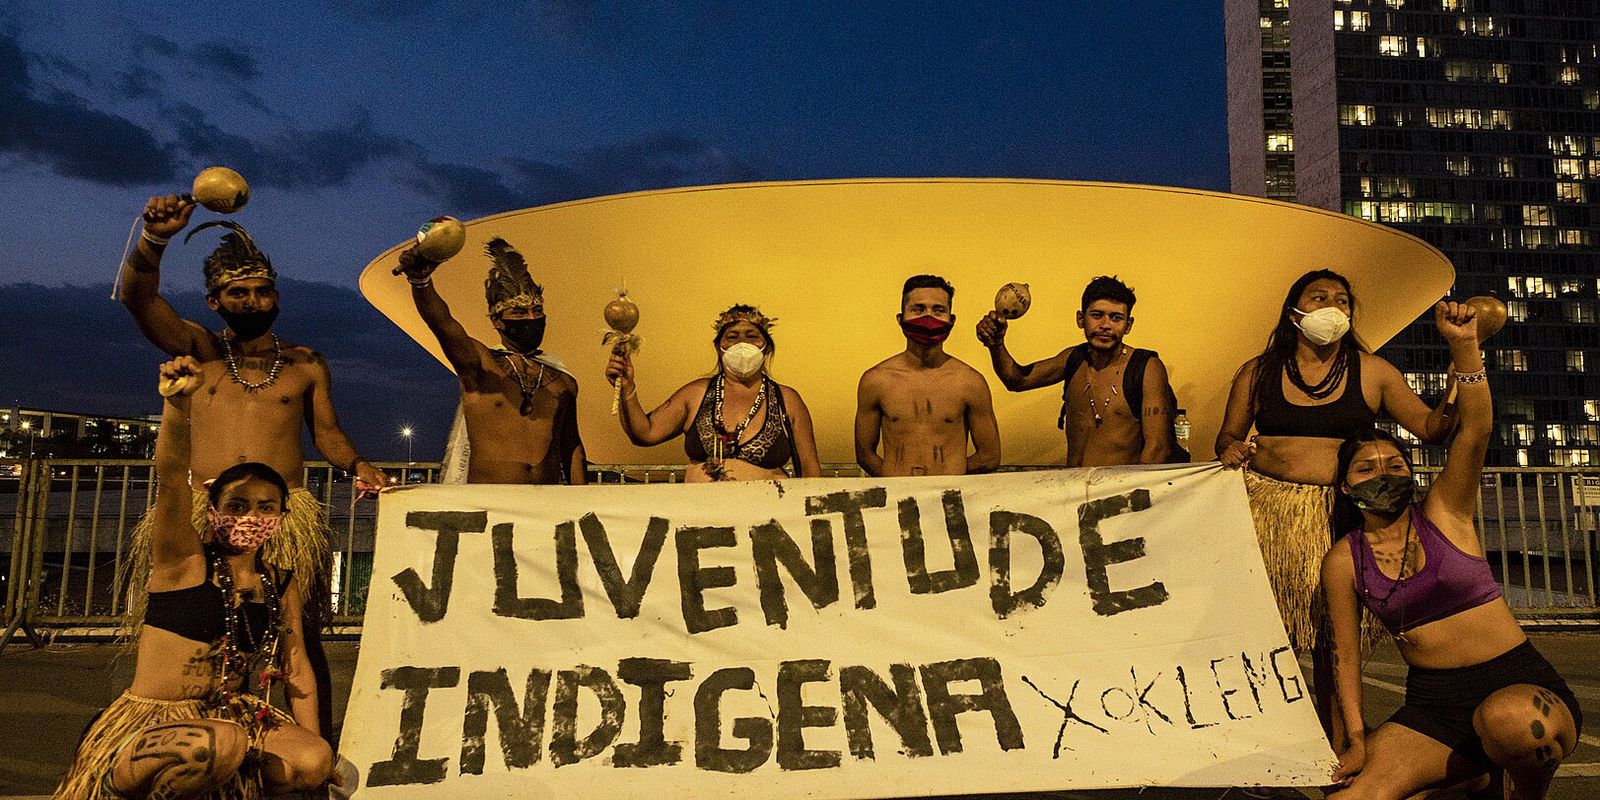 JUVENTUDE
INDIGENA XOKLENG